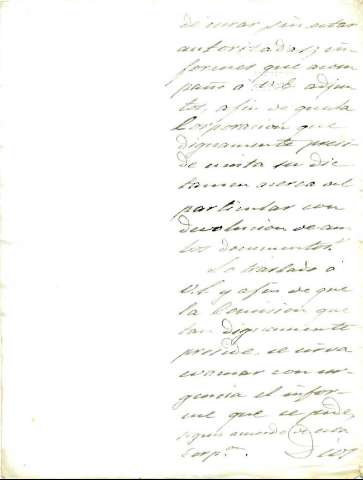 de curar sin estar
autorizadas, é in-
formes que acom
paño á V.E. adjun
tos, a fin de que la
Corporacion que
dignamente presi-
de emita su dic
tamen acerca del
particular con
devolucion de am
bos documentos."
Lo traslado á
V.E. y a fin de que
la Comision que
tan dignamente
preside, se sirva
evacuar con ur-
gencia el infor-
me que se pide,
segun acuerdo de esta
Corpn.
Dios